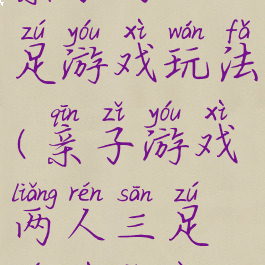 zú yóu xì wán fǎ
足游戏玩法
qīn zǐ yóu xì
(亲子游戏
liǎng rén sān zú
两人三足